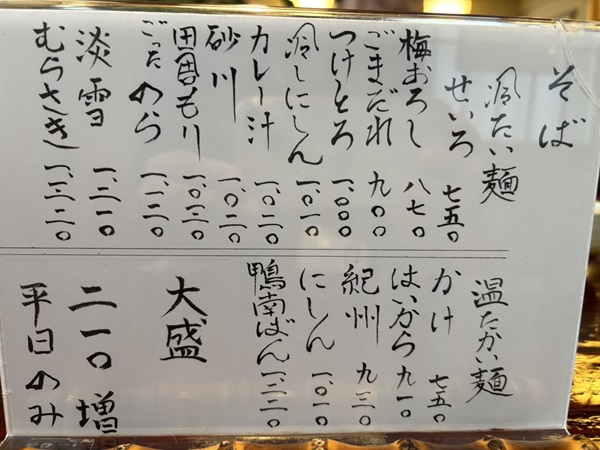 そば
冷たい麺
せいろ 七五〇
梅おろし 八七〇
ごまだれ 九〇〇
つけとろ 一、〇〇〇
冷しにしん 一、〇一〇
カレー汁 一、〇二〇
砂川 一、〇二〇
田舎もり 一、〇三〇
ごったのめら 一、一二〇
淡雪 一、三一〇
むらさき 一、三二〇
温たかい麺
かけ 七五〇
はいから 九一〇
紀州 九三〇
にしん 一、〇一〇
鴨南ばん 一、二二〇
大盛
二一〇増
平日のみ